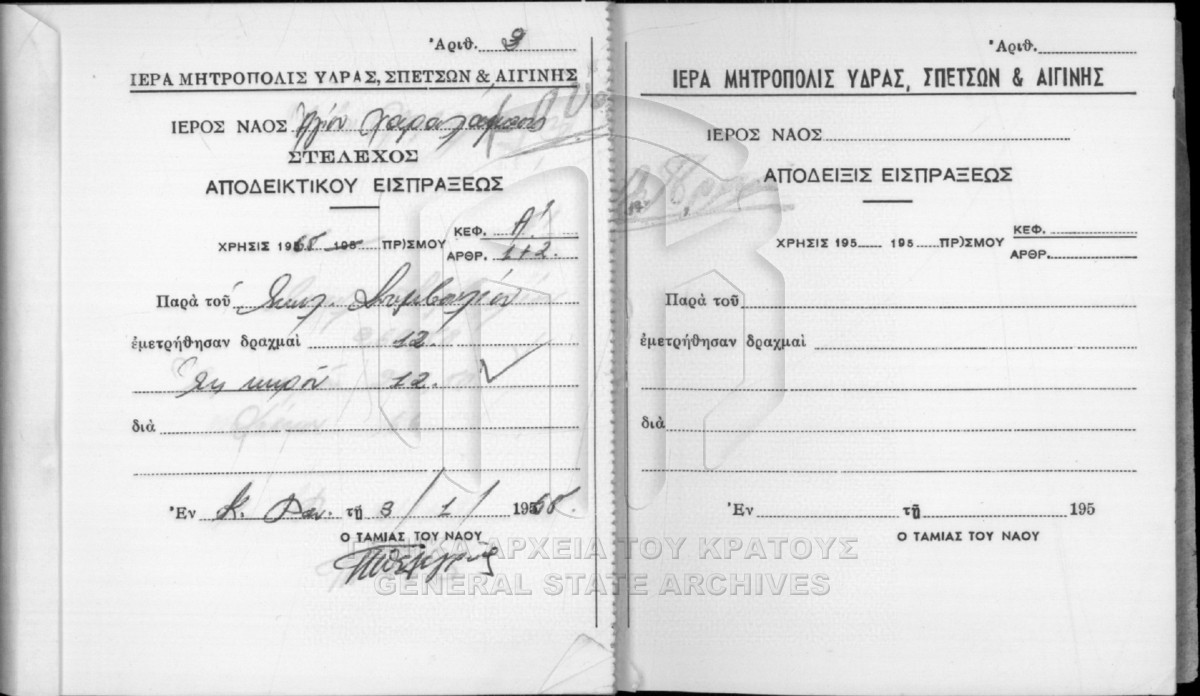 Ἀριθ. 3
ΙΕΡΑ ΜΗΤΡΟΠΟΛΙΣ ΥΔΡΑΣ, ΣΠΕΤΣΩΝ & ΑΙΓΙΝΗΣ
ΙΕΡΟΣ ΝΑΟΣ Ἁγίου Χαραλάμπους
ΣΤΕΛΕΧΟΣ
ΑΠΟΔΕΙΚΤΙΚΟΥ ΕΙΣΠΡΑΞΕΩΣ
ΧΡΗΣΙΣ 19 195 ΠΡ)ΣΜΟΥ ΚΕΦ. Α'
ΑΡΘΡ. 1+2.
Παρὰ τοῦ
ἐμετρήθησαν δραχμαὶ 12.
12.
διὰ
Ἐν Κ. τῇ 3/1/195
Ο ΤΑΜΙΑΣ ΤΟΥ ΝΑΟΥ
Ἀριθ.
ΙΕΡΑ ΜΗΤΡΟΠΟΛΙΣ ΥΔΡΑΣ, ΣΠΕΤΣΩΝ & ΑΙΓΙΝΗΣ
ΙΕΡΟΣ ΝΑΟΣ
ΑΠΟΔΕΙΞΙΣ ΕΙΣΠΡΑΞΕΩΣ
ΧΡΗΣΙΣ 195 195 ΠΡ)ΣΜΟΥ ΚΕΦ.
ΑΡΘΡ.
Παρὰ τοῦ
ἐμετρήθησαν δραχμαὶ
διὰ
Ἐν τῇ 195
Ο ΤΑΜΙΑΣ ΤΟΥ ΝΑΟΥ
ΑΡΧΕΙΑ ΤΟΥ ΚΡΑΤΟΥΣ
GENERAL STATE ARCHIVES